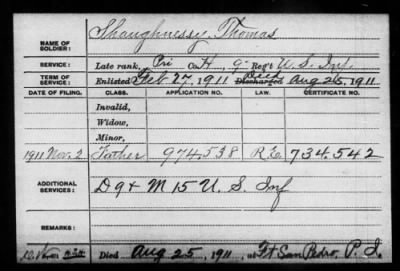 NAME OF SOLDIER: Shaughnessy, Thomas
SERVICE: Late rank, Pri Co. H, 9 Reg't U. S. Inf.
TERM OF SERVICE: Enlisted Feb. 27, 1911 Discharged Died Aug 25, 1911
DATE OF FILING. CLASS. APPLICATION NO. LAW. CERTIFICATE NO.
Invalid,
Widow,
Minor,
1911 Nov. 2 Father 974,538 734,542
ADDITIONAL SERVICES: D 9 & M 15 U. S. Inf
REMARKS:
Died Aug 25, 1911, at Ft San Pedro, P. I.